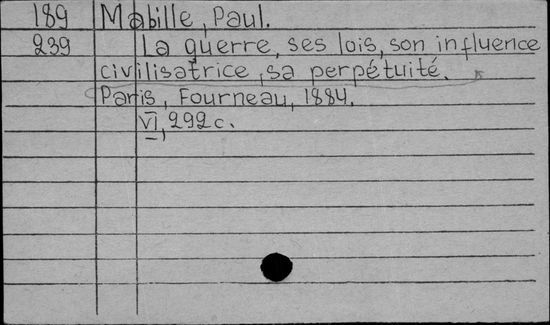 189 Mabille, Paul.
239 La guerre, ses lois, son influence
civilisatrice, sa perpétuité.
Paris, Fourneau, 1884.
VI, 292 c.